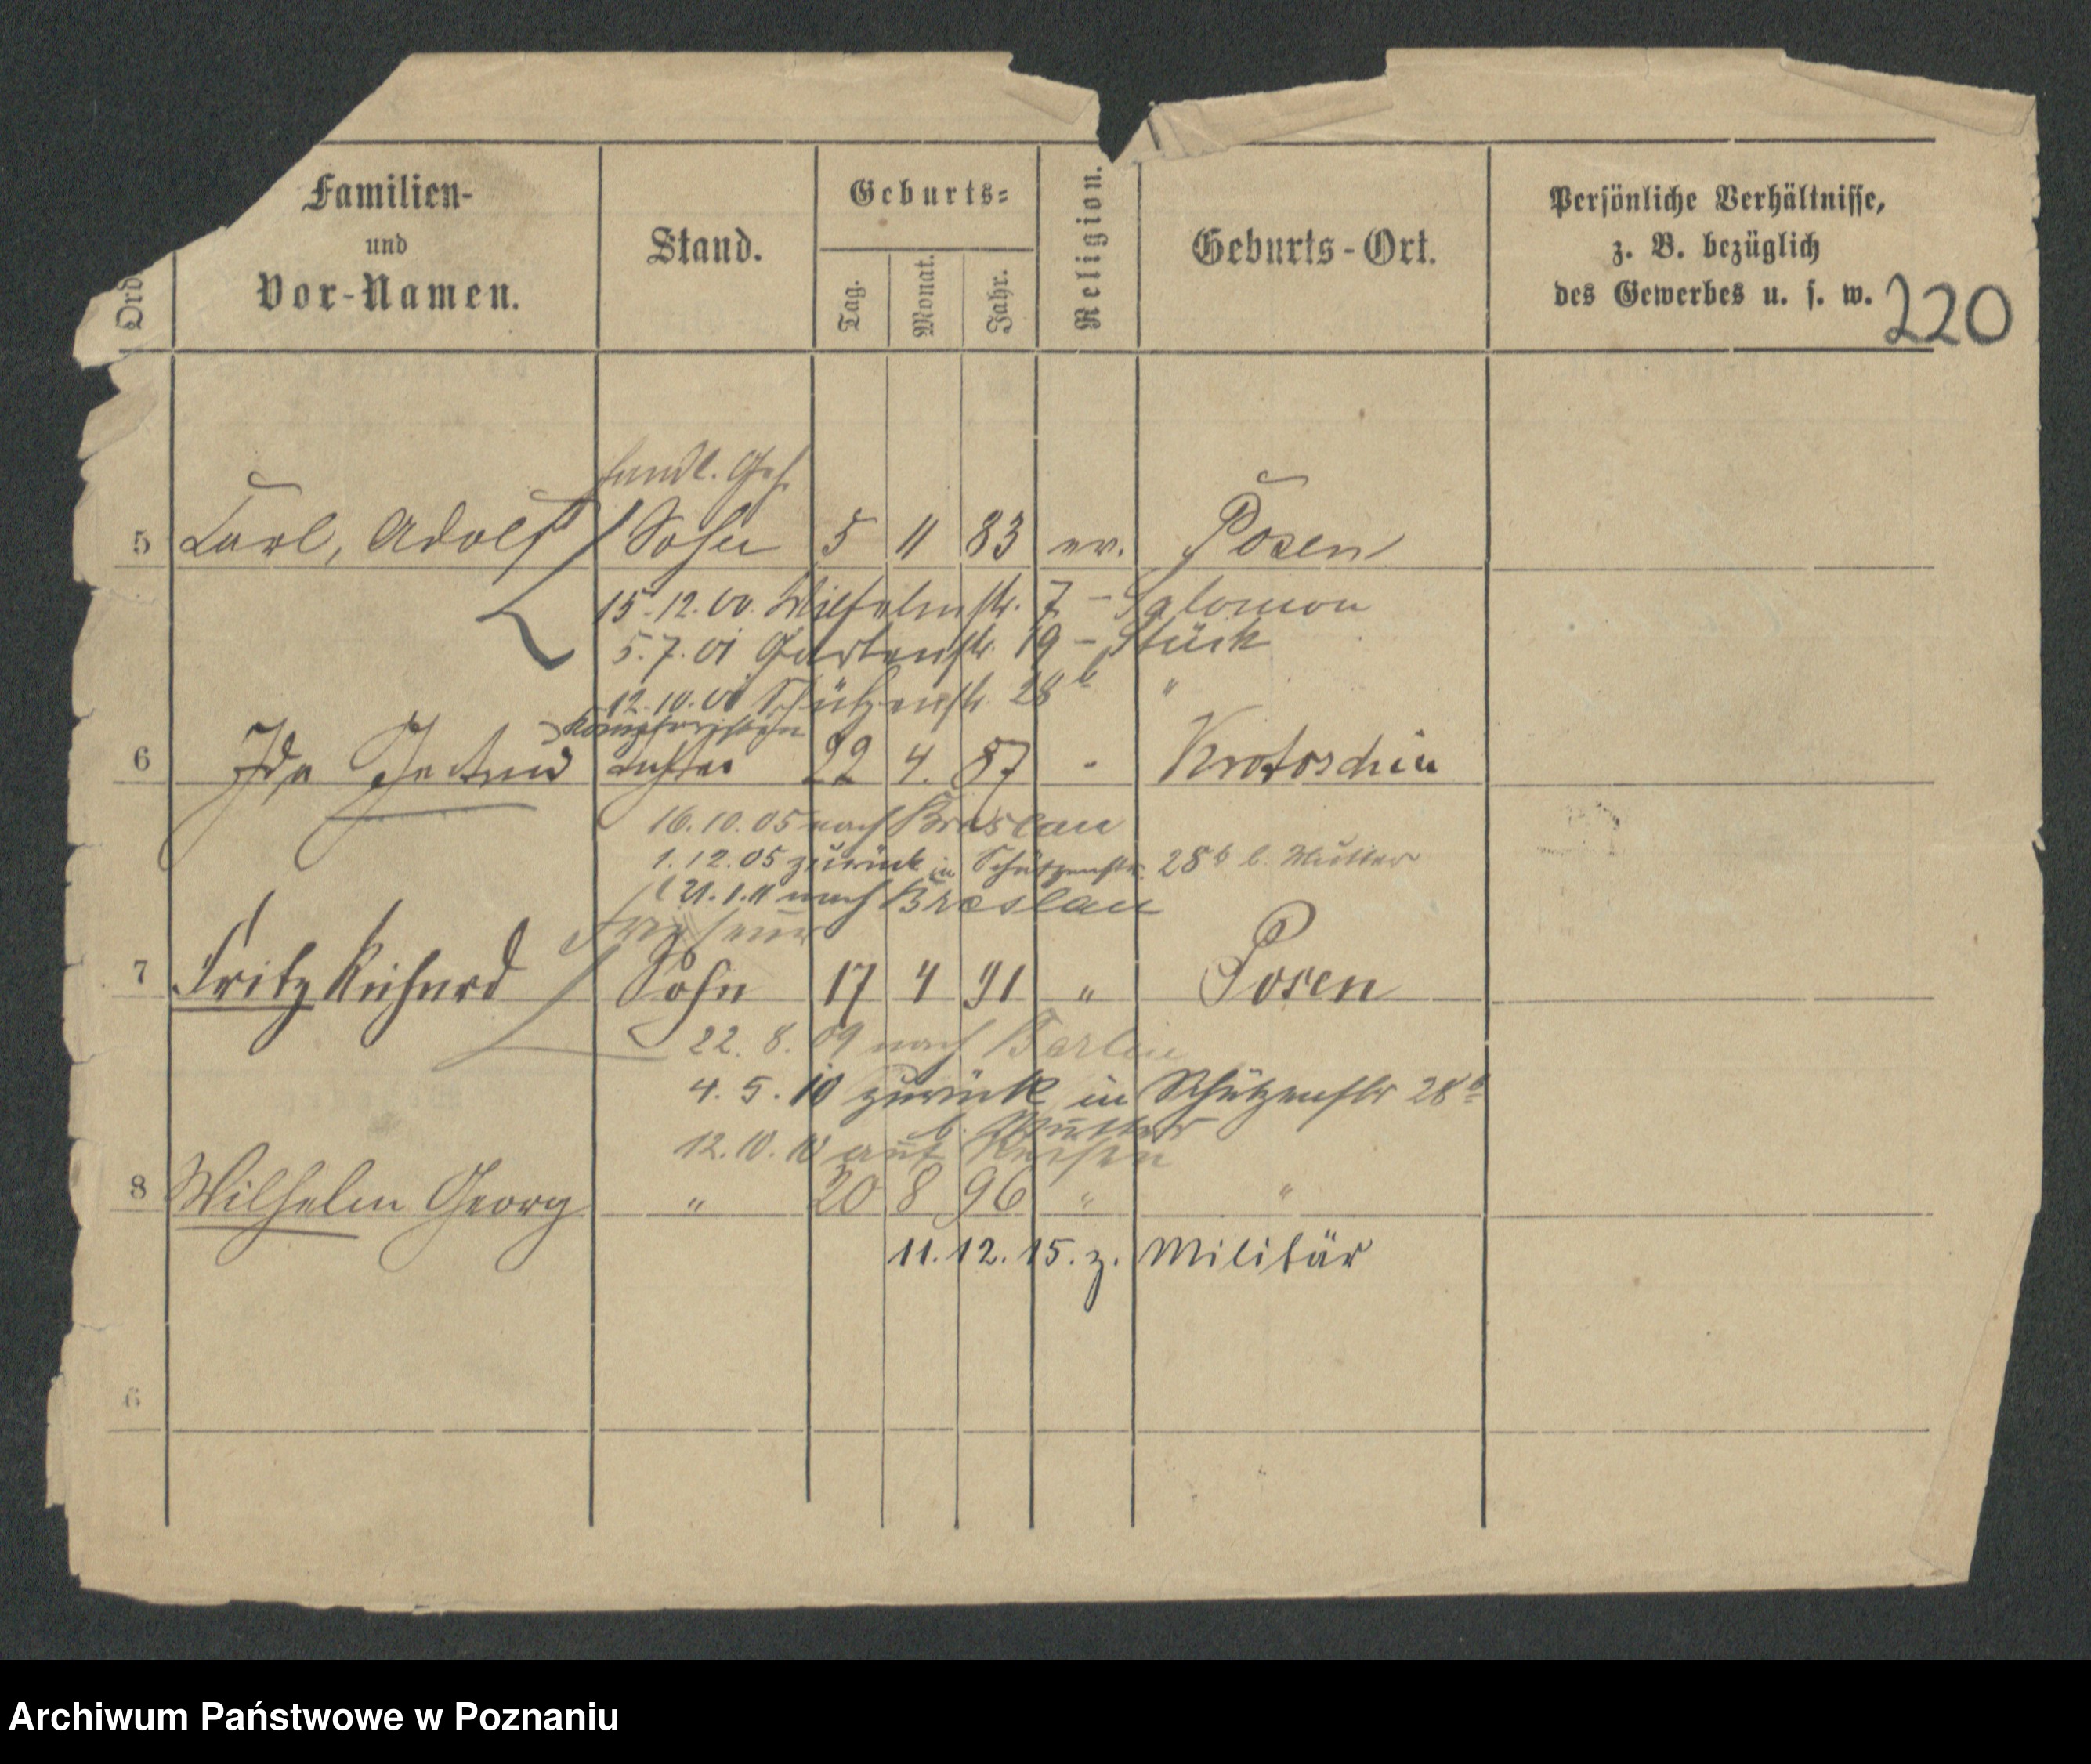 Ord
Familien-
und
Vor-Namen.
Stand.
Geburts-
Tag.
Monat.
Jahr.
Religion.
Geburts-Ort.
Persönliche Verhältnisse,
z. B. bezüglich
des Gewerbes u. s. w.
220
Handl. Geh.
5 Carl, Adolf Sohn 5 11 83 ev. Posen
15.12.00. Wilhelmstr. 7 - Salomon
5.7.01 Gartenstr. 19 - Stück
12.10.01 Schützenstr. 28b "
6 Ida Gertrud Tochter 22 4. 87 - Krotoschin
16.10.05 nach Breslau
1.12.05 zurück in Schützenstr. 28b b. Mutter
21.1.11 nach Breslau
Friseur
7 Fritz Richard Sohn 17 4 91 " Posen
22. 8. 09 nach Berlin
4. 5. 10 zurück in Schützenstr 28b
b. Mutter
12.10.10 auf Reisen
8 Wilhelm Georg " 20 8 96 " "
11.12.15. z. Militär
6
Archiwum Państwowe w Poznaniu